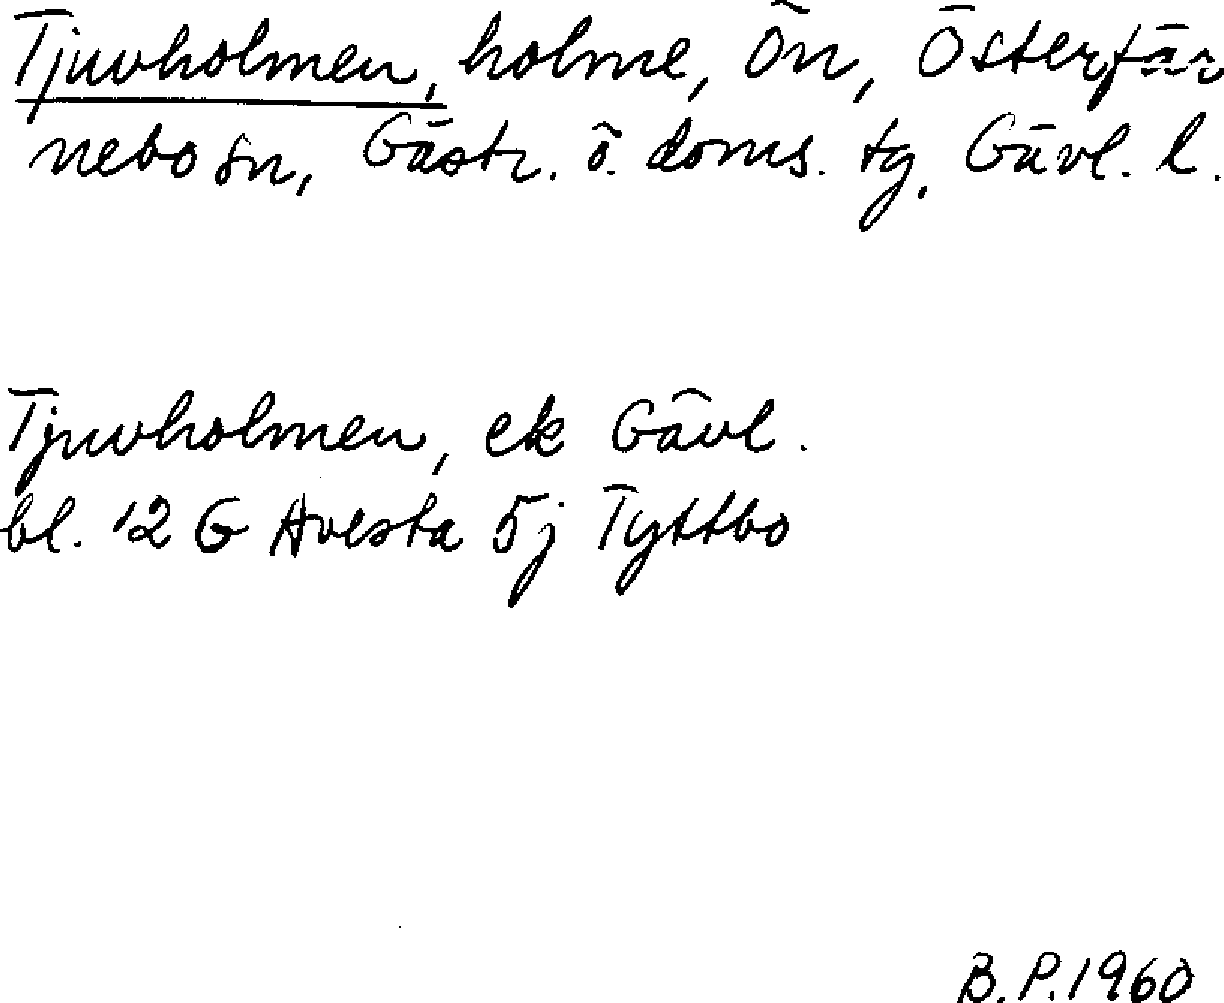 Tjuvholmen, holme, Ön, Österfär
nebo sn, Gästr. ö. doms. tg, Gävl. l.
Tjuvholmen, ek Gävl.
bl. 12 G Avesta 5j Tyttbo
B.P.1960